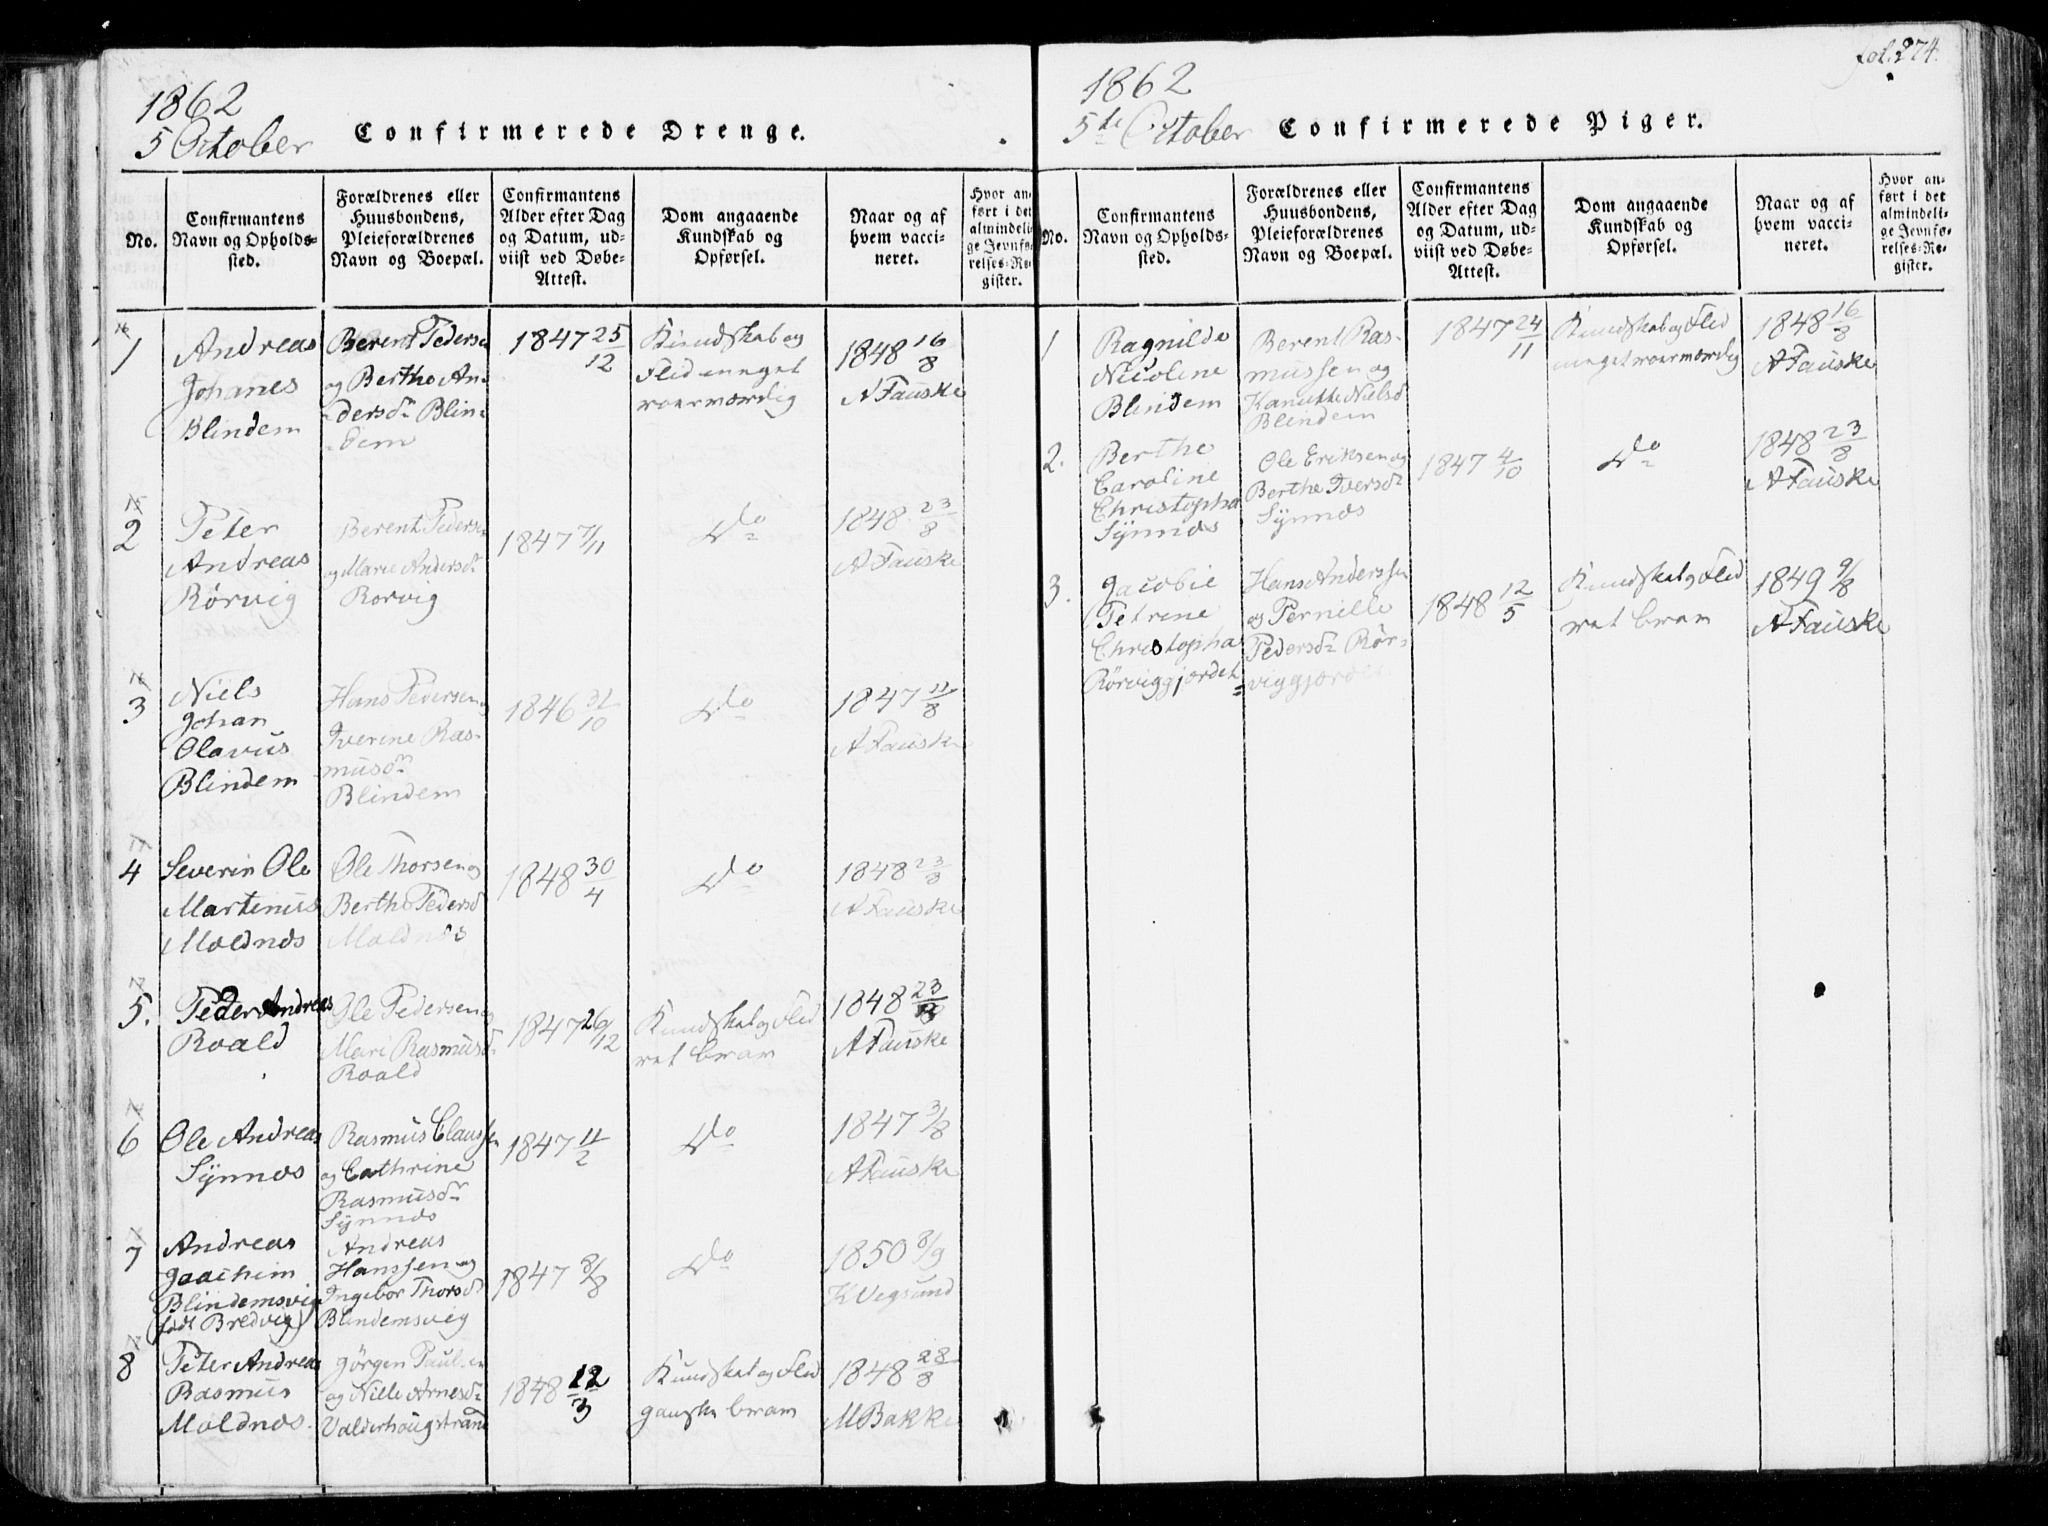 1862
5 October
Confirmerede Drenge.
No.
Confirmantens
Navn og Opholds-
sted.
Forældrenes eller
Huusbondens,
Pleieforældrenes
Navn og Boepæl.
Confirmantens
Alder efter Dag
og Datum, ud-
viist ved Døbe-
Attest.
Dom angaaende
Kundskab og
Opførsel.
Naar og af
hvem vacci-
neret.
Hvor an-
ført i det
almindeli-
ge Jevnfø-
relses-Re-
gister.
1
Andreas
Johanes
Blindem
Berent Pedersen
og Berthe An-
dersdr Blin-
dem
1847 25/12
Kundskab og
Flid meget
roesværdig
1848 16/8
A Fauske
2
Peter
Andreas
Rörvig
Berent Pedersen
og Marie Andersdr
Rorvig
1847 7/11
Do
1848 23/8
A Fauske
3
Niels
Johan
Olavus
Blindem
Hans Pedersen og
Iverine Ras-
musdr
Blindem
1846 31/10
Do
1847 11/8
A Fauske
4
Severin Ole
Martinus
Moldnæs
Ole Thorsen og
Berthe Pedersd
Moldnæs
1848 30/4
Do
1848 23/8
A Fauske
5.
Peder Andreas
Roald
Ole Pedersen og
Mari Rasmusdr
Roald
1847 26/12
Kundskab og Flid
ret brav
1848 23/8
A Fauske
6
Ole Andreas
Synnæs
Rasmus Claussen
og Cathrine
Rasmusdr
Synnæs
1847 11/2
Do
1847 3/8
A Fauske
7
Andreas
Joachim
Blindemsvig
(födt Bredvig)
Andreas
Hanssen og
Ingebor Thorsdr
Blindemsvig
1847 8/8
Do
1850 8/9
K Vegsund
8
Peter Andreas
Rasmus
Moldnæs.
Jörgen Paulsen
og Nille Arnesdr
Valderhougstrand
1848 12/3
Kundskab og Flid
ganske brav
1848 28/8
M Bakke
fol. 274.
1862
5te October
Confirmerede Piger.
No.
Confirmantens
Navn og Opholds-
sted.
Forældrenes eller
Huusbondens,
Pleieforældrenes
Navn og Boepæl.
Confirmantens
Alder efter Dag
og Datum, ud-
viist ved Døbe-
Attest.
Dom angaaende
Kundskab og
Opførsel.
Naar og af
hvem vacci-
neret.
Hvor an-
ført i det
almindeli-
ge Jevnfø-
relses-Re-
gister.
1
Ragnilde
Nicoline
Blindem
Berent Ras-
mussen og
Kanutte Nielsd
Blindem
1847 24/11
Kundskab og Flid
meget roesværdig
1848 16/8
A Fauske
2.
Berthe
Caroline
Christopha
Synnæs
Ole Eriksen og
Berthe Iversdr
Synnæs
1847 4/10
Do
1848 23/8
A Fauske
3.
Jacobie
Petrine
Christopha
Rörviggjerdet
Hans Anderssen
og Pernille
Pedersdr Rör-
viggjerdet
1848 12/5
Kundskab og Flid
ret brav
1849 9/8
A Fauske